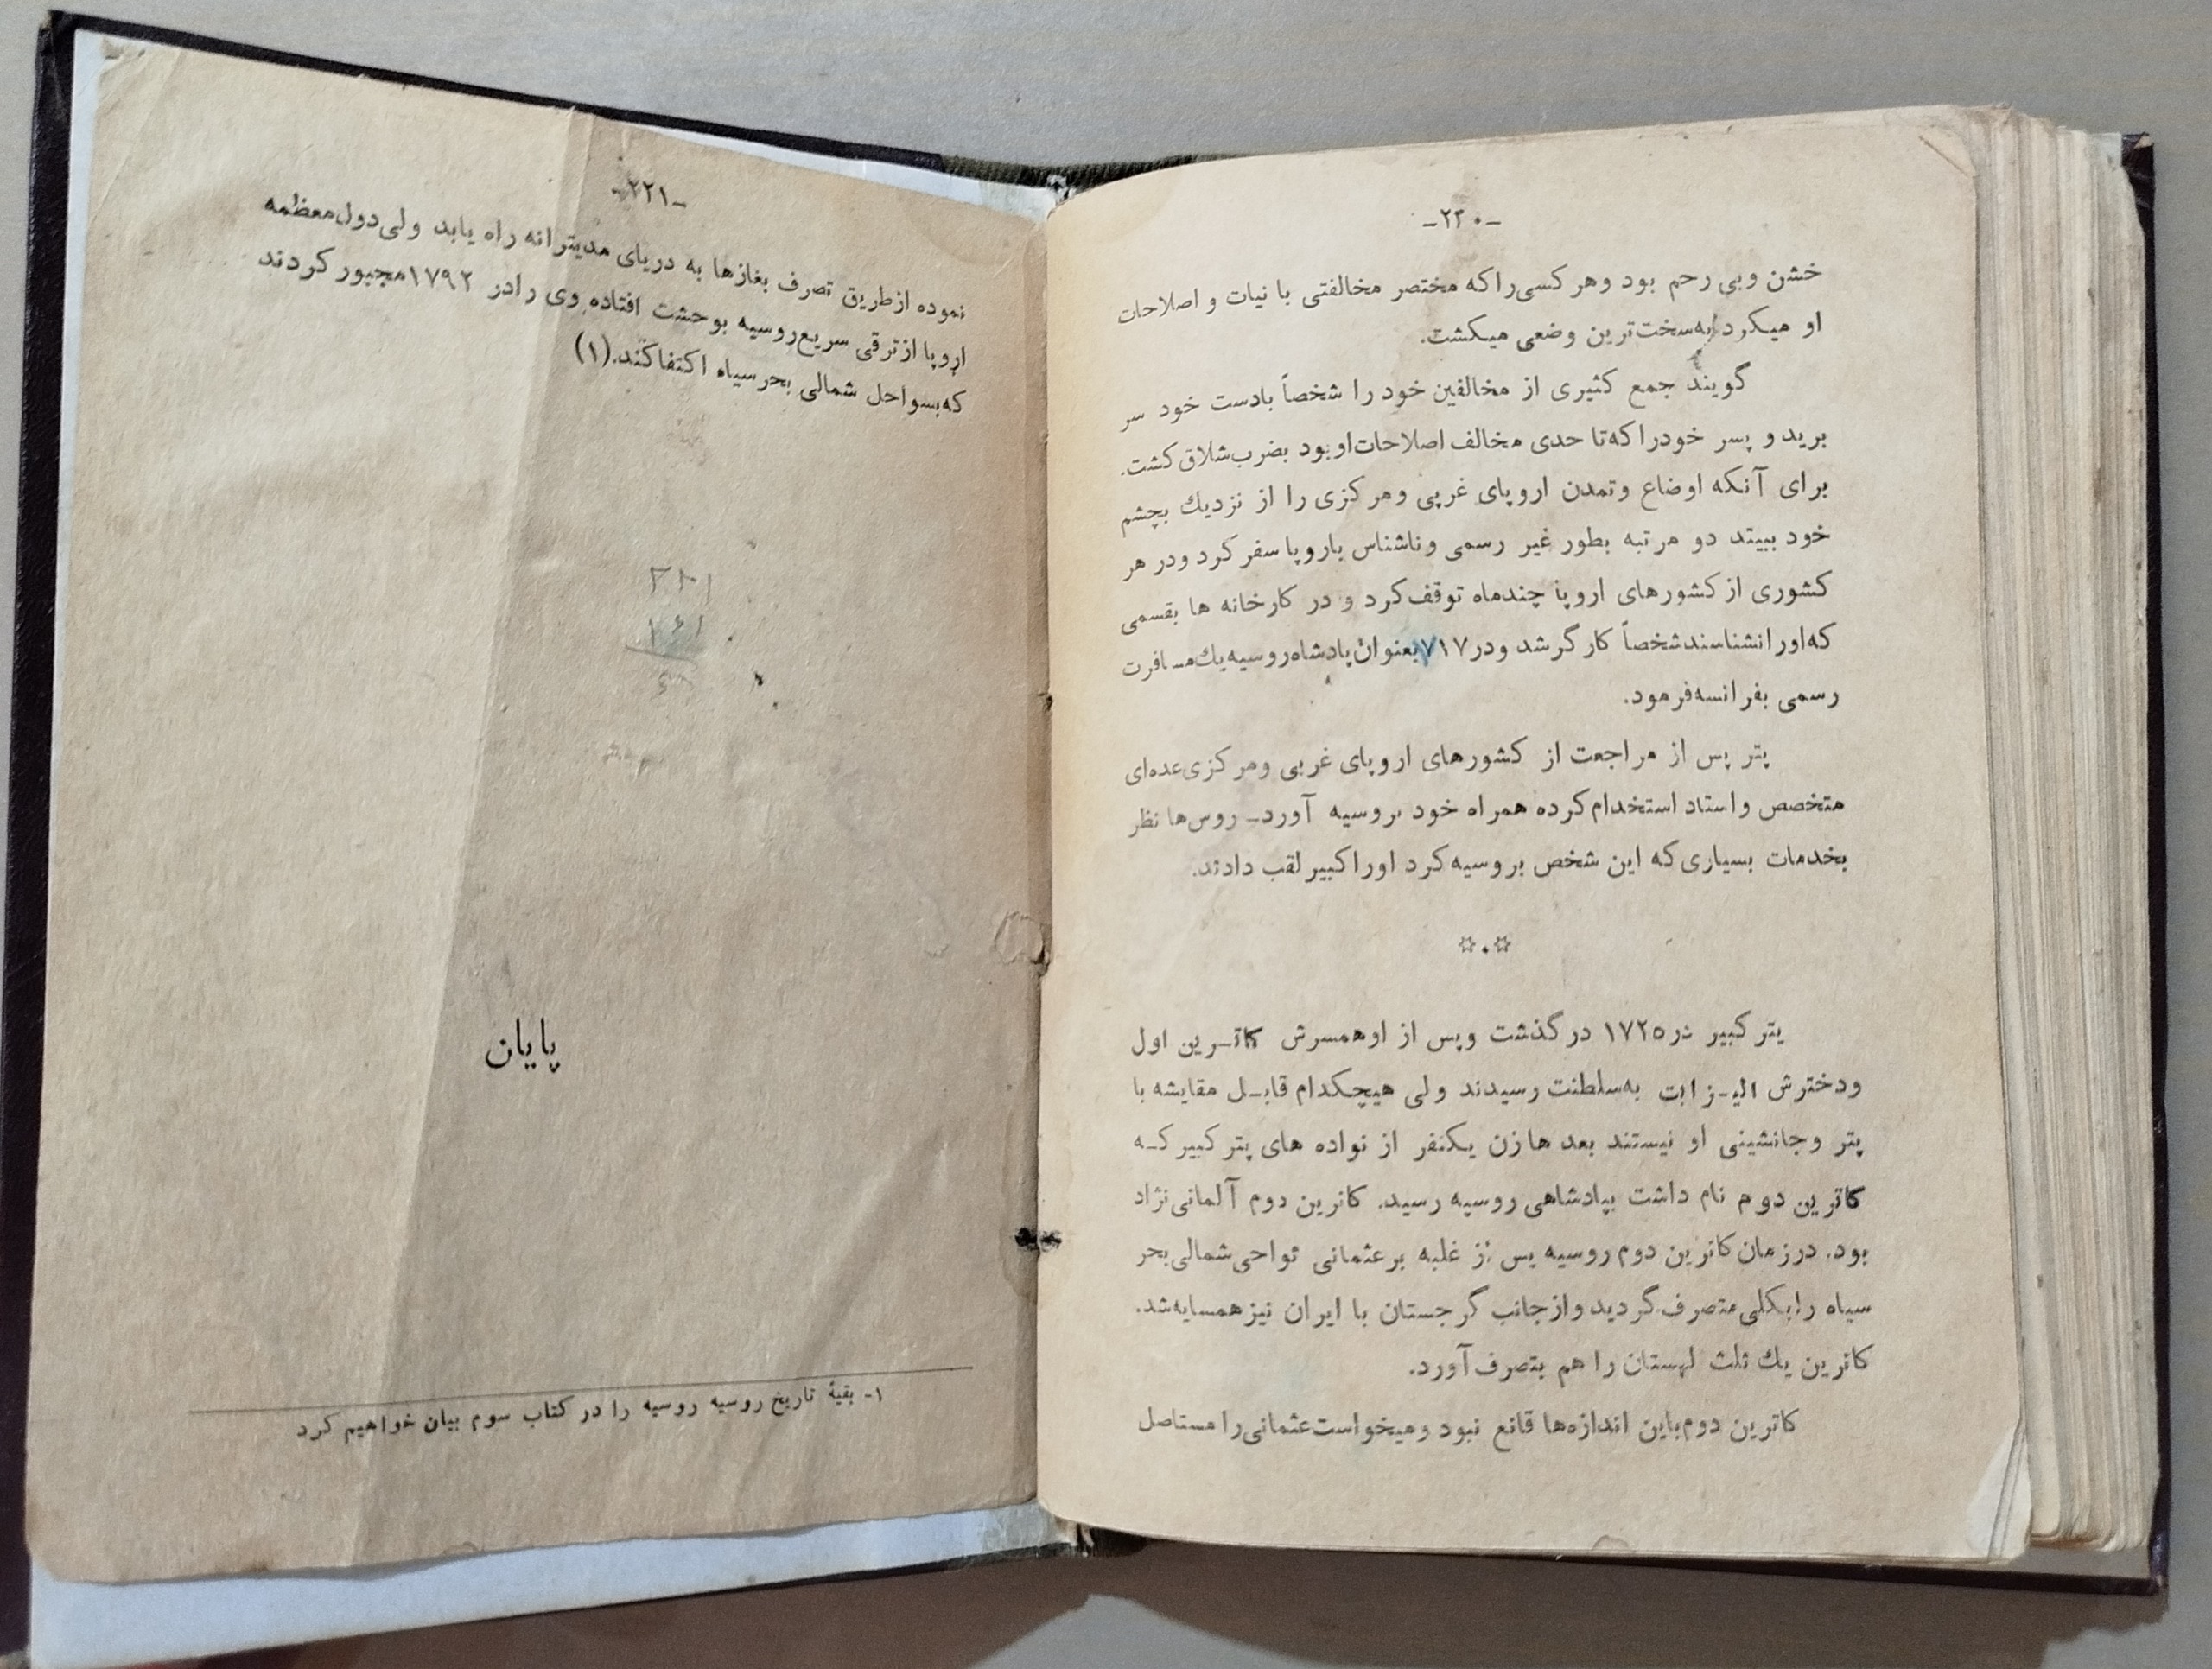 -۲۲۰-
خشن وبی رحم بود وهر کسی‌را که مختصر مخالفتی با نیات و اصلاحات
او میکرد به‌سخت‌ترین وضعی میکشت.
گویند جمع کثیری از مخالفین خود را شخصاً بادست خود سر
برید و پسر خودرا که‌تا حدی مخالف اصلاحات‌او بود بضرب‌شلاق کشت.
برای آنکه اوضاع وتمدن اروپای غربی ومرکزی را از نزدیك بچشم
خود ببیند دو مرتبه بطور غیر رسمی وناشناس باروپا سفر کرد ودر هر
کشوری از کشورهای اروپا چندماه توقف‌کرد و در کارخانه ها بقسمی
که‌اورا نشناسند شخصاً کارگر شد ودر ۷۱۷ بعنوان پادشاه روسیه یك مسافرت
رسمی بفرانسه‌فرمود.
پتر پس از مراجعت از کشورهای اروپای غربی ومرکزی‌عده‌ای
متخصص واستاد استخدام‌کرده همراه خود بروسیه آورد_ روس‌ها نظر
بخدمات بسیاری‌که این شخص بروسیه کرد اورا کبیر لقب دادند.
☆.☆
پتر کبیر در ۱۷۲۵ درگذشت وپس از او همسرش کاتـرین اول
ودخترش الیـزابت به‌سلطنت رسیدند ولی هیچکدام قابـل مقایشه با
پتر وجانشینی او نیستند بعد ها زن یکنفر از نواده های پتر کبیر کـه
کاترین دوم نام داشت بپادشاهی روسیه رسید. کاترین دوم آلمانی‌نژاد
بود. درزمان کاترین دوم روسیه پس از غلبه برعثمانی نواحی شمالی‌بحر
سیاه رابکلی متصرف گردید واز جانب گرجستان با ایران نیز همسایه‌شد.
کاترین یك ثلث لهستان را هم بتصرف آورد.
کاترین دوم باین اندازه‌ها قانع نبود ومیخواست عثمانی‌را مستاصل
-۲۲۱-
نموده از طریق تصرف بغازها به دریای مدیترانه راه یابد ولی دول معظمه
اروپا از ترقی سریع روسیه بوحشت افتاده وی رادر ۱۷۹۲ مجبور کردند
که بسواحل شمالی بحر سیاه اکتفا کند.(۱)
پایان
۱- بقیهٔ تاریخ روسیه روسیه را در کتاب سوم بیان خواهیم کرد